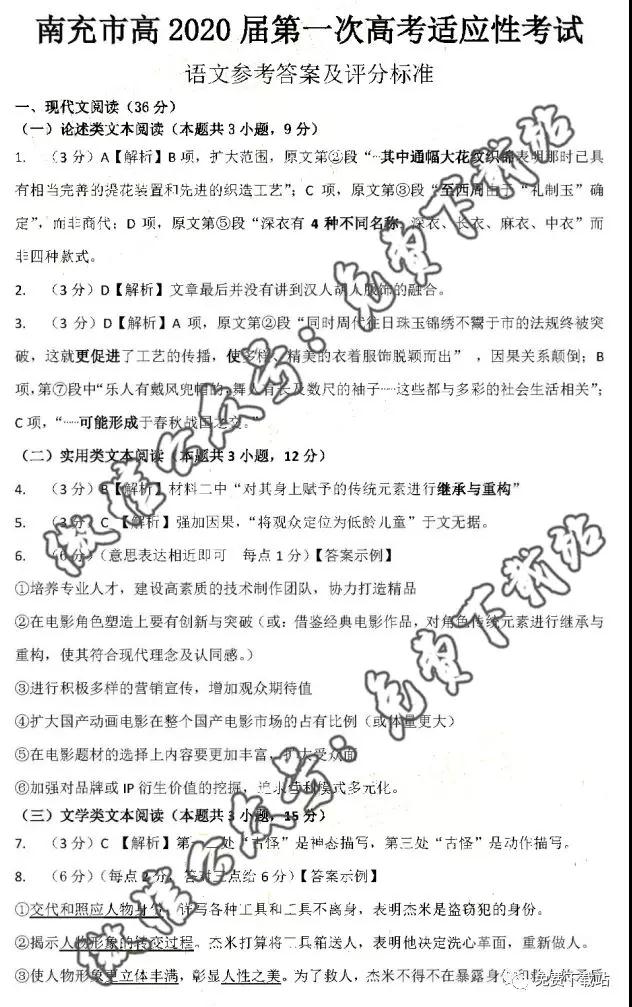 南充市高 2020 届第一次高考适应性考试
语文参考答案及评分标准
一、现代文阅读（36 分）
（一）论述类文本阅读（本题共 3 小题，9 分）
1. （3 分）A【解析】B 项，扩大范围，原文第②段“…其中通幅大花纹织锦表明那时已具
有相当完善的提花装置和先进的织造工艺”；C 项，原文第③段“至西周由于“礼制玉”确
定”，而非商代；D 项，原文第⑤段“深衣有 4 种不同名称：深衣、长衣、麻衣、中衣”而
非四种款式。
2. （3 分）D【解析】文章最后并没有讲到汉人胡人服饰的融合。
3. （3 分）D【解析】A 项，原文第②段“同时周代往日珠玉锦绣不鬻于市的法规终被突
破，这就更促进了工艺的传播，使多样、精美的衣着服饰脱颖而出” ，因果关系颠倒；B
项，第⑦段中“乐人有戴风兜帽的，舞人有长及数尺的袖子……这些都与多彩的社会生活相关”；
C 项，“……可能形成于春秋战国之交。”
（二）实用类文本阅读（本题共 3 小题，12 分）
4. （3 分）B【解析】材料二中“对其身上赋予的传统元素进行继承与重构”
5. （3 分）C 【解析】强加因果，“将观众定位为低龄儿童”于文无据。
6. （6 分）（意思表达相近即可 每点 1 分）【答案示例】
①培养专业人才，建设高素质的技术制作团队，协力打造精品
②在电影角色塑造上要有创新与突破（或：借鉴经典电影作品，对角色传统元素进行继承与
重构，使其符合现代理念及认同感。）
③进行积极多样的营销宣传，增加观众期待值
④扩大国产动画电影在整个国产电影市场的占有比例（或体量更大）
⑤在电影题材的选择上内容要更加丰富，扩大受众面
⑥加强对品牌或 IP 衍生价值的挖掘，追求盈利模式多元化。
（三）文学类文本阅读（本题共 3 小题，15 分）
7. （3 分）C 【解析】第一、二处“古怪”是神态描写，第三处“古怪”是动作描写。
8. （6 分）（每点 2 分，答对三点给 6 分）【答案示例】
①交代和照应人物身份，详写各种工具和工具不离身，表明杰米是盗窃犯的身份。
②揭示人物形象的转变过程。杰米打算将工具箱送人，表明他决定洗心革面，重新做人。
③使人物形象更立体丰满，彰显人性之美。为了救人，杰米不得不在暴露身份和
微信公众号：免费下载站
微信公众号：免费下载站
免费下载站